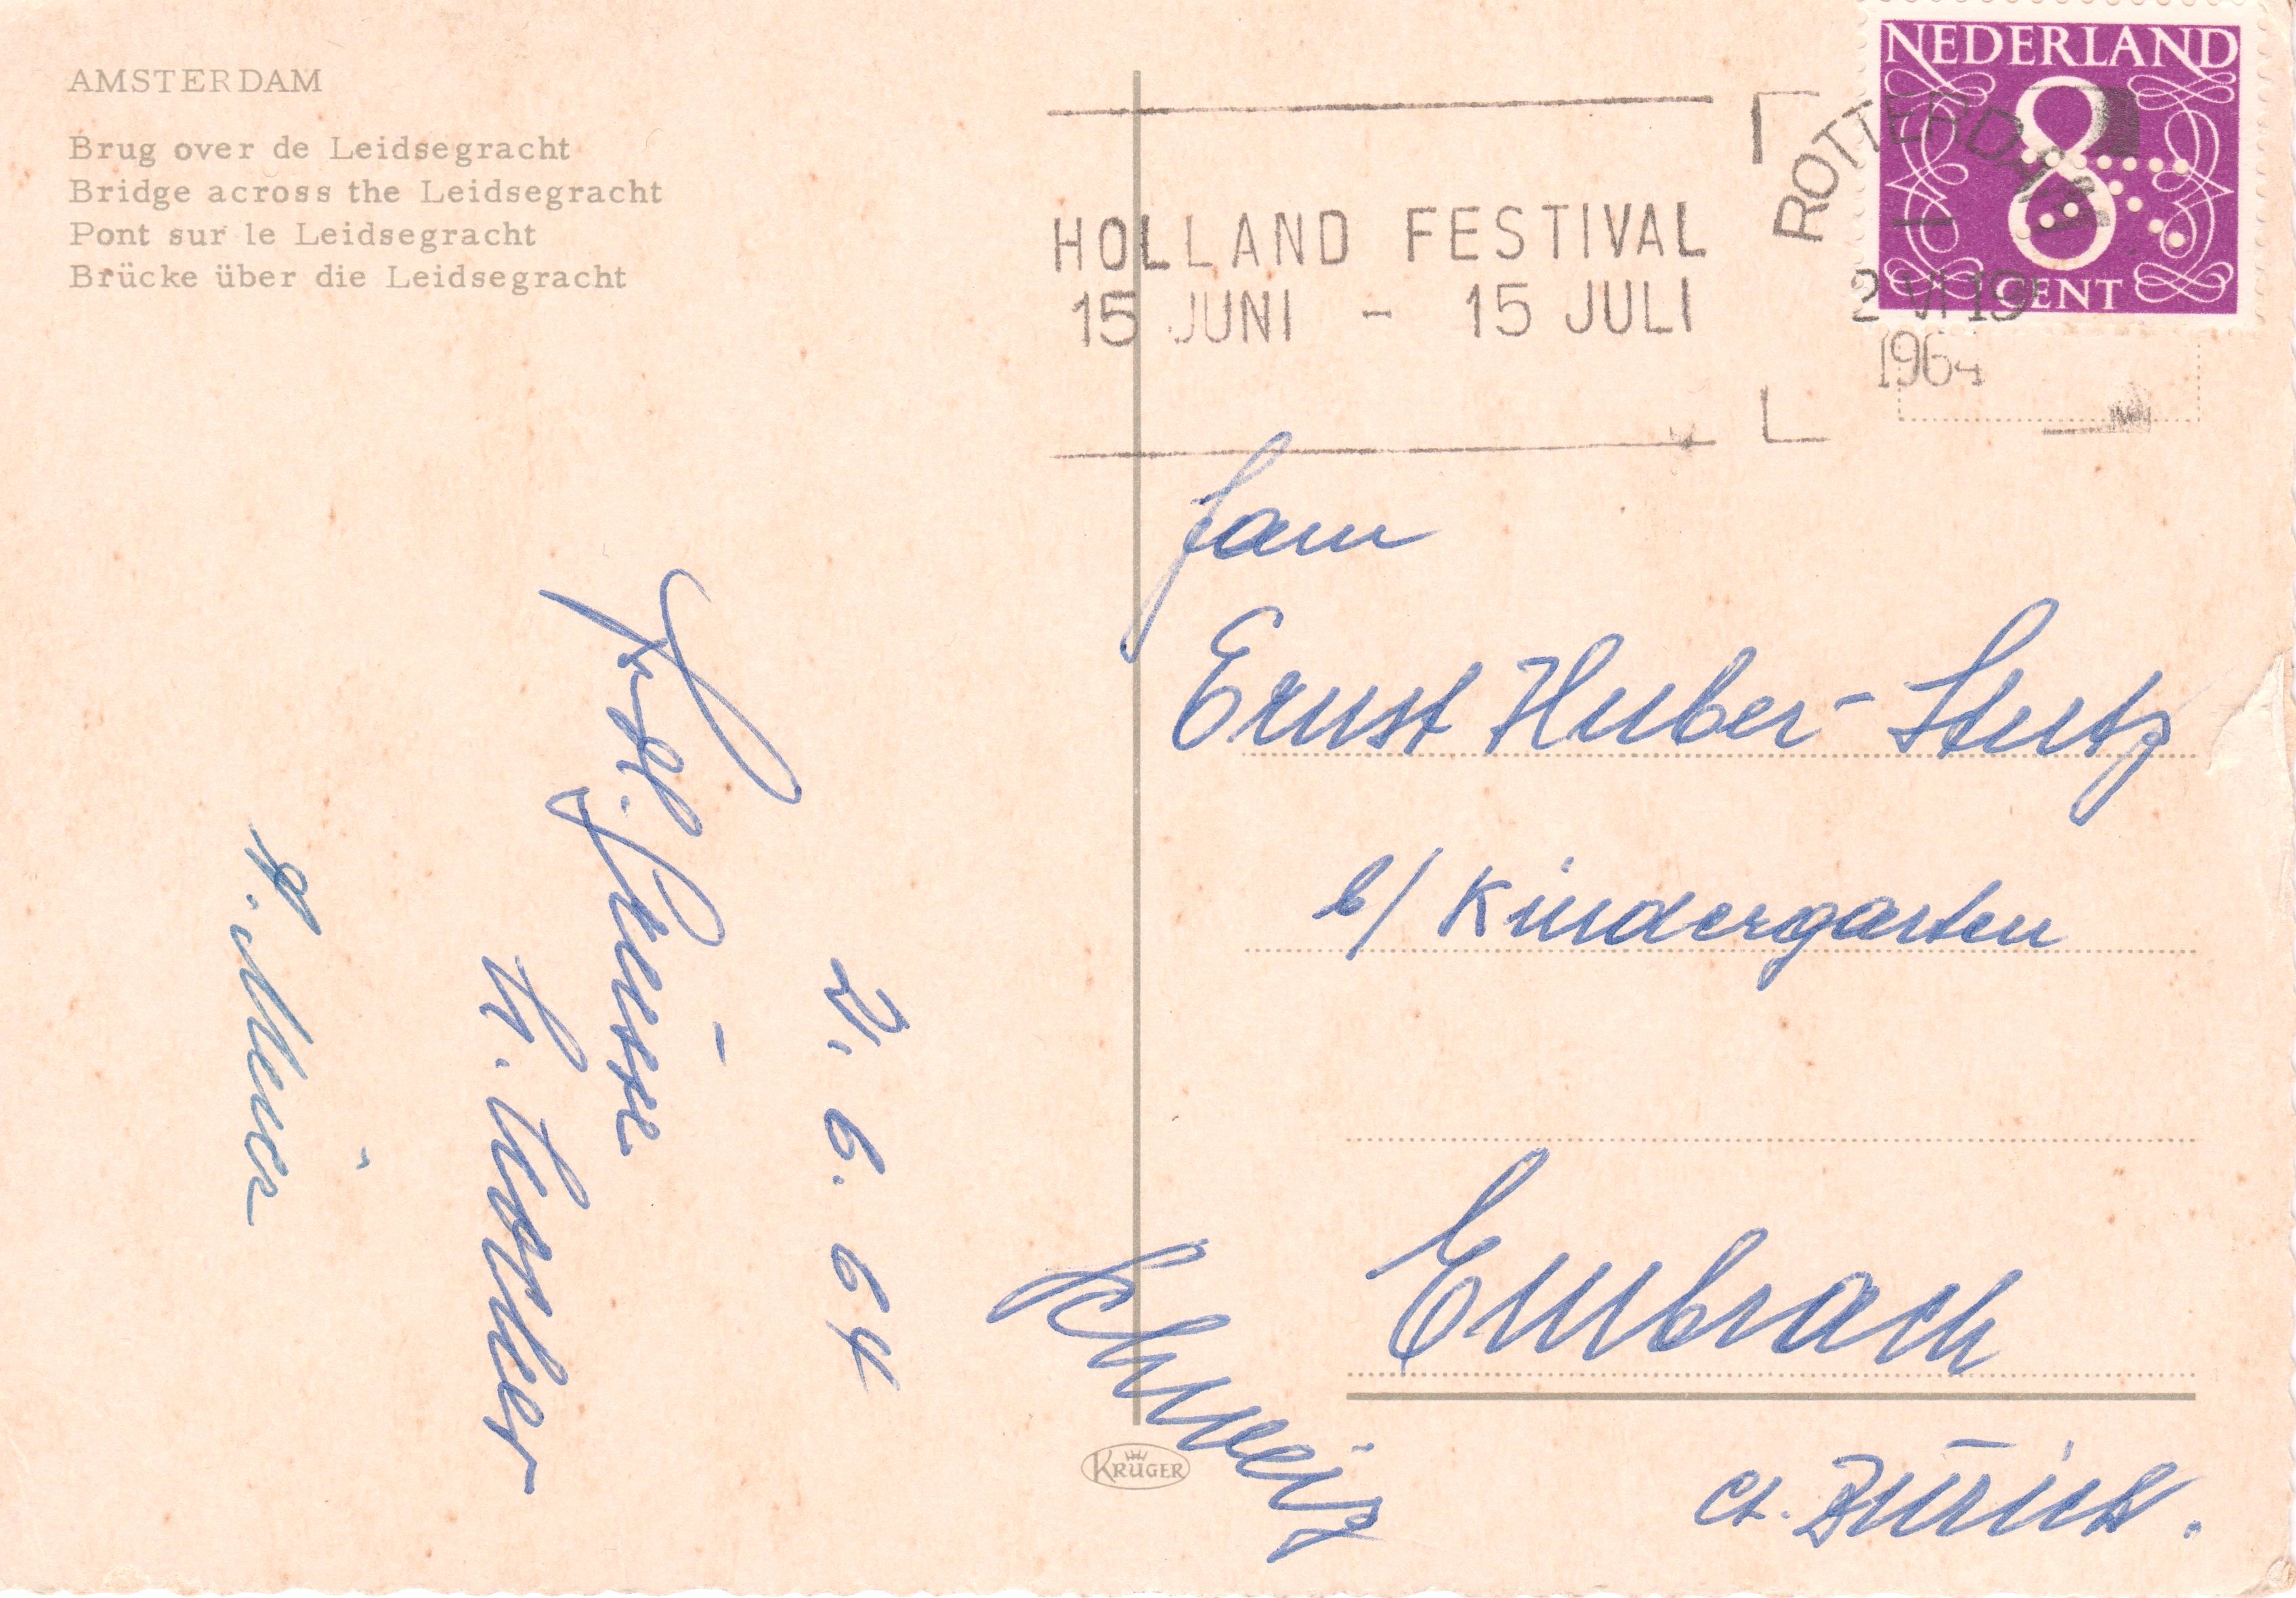 AMSTERDAM
Brug over de Leidsegracht
Bridge across the Leidsegracht
Pont sur le Leidsegracht
Brücke über die Leidsegracht
HOLLAND FESTIVAL
15 JUNI - 15 JULI
ROTTERDAM
2 VI 19
1964
NEDERLAND
8
CENT
2. 6. 64
Grüsse
A. Meier
Fam
Ernst Huber-Stutz
b/ Kindergarten
Embrach
Ct. Zürich.
Schweiz
KRÜGER